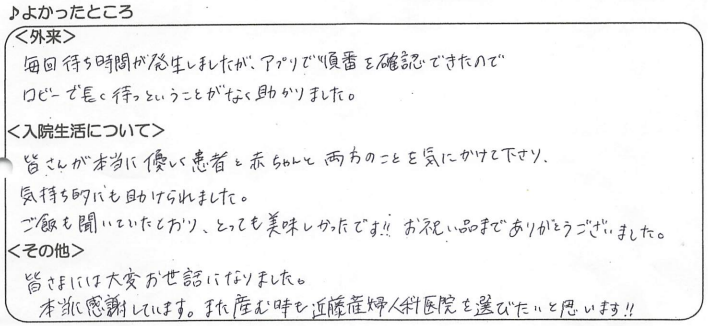 ♪よかったところ
<外来>
毎回待ち時間が発生しましたが、アプリで順番を確認できたので
ロビーで長く待つということがなく助かりました。
<入院生活について>
皆さんが本当に優しく患者と赤ちゃんと両方のことを気にかけて下さり、
気持ち的にも助けられました。
ご飯も聞いていたとおり、とっても美味しかったです!! お祝い品までありがとうございました。
<その他>
皆さまには大変お世話になりました。
本当に感謝しています。また産む時も近藤産婦人科医院を選びたいと思います!!